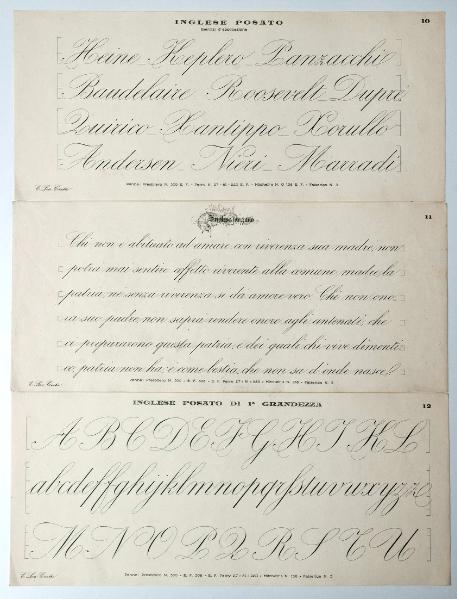 INGLESE POSATO
10
Esercizi d'applicazione
Heine Keplero Panzacchi
Baudelaire Roosevelt Dupré
Quirico Xantippo Xorullo
Andersen Nieri Marradi
11
Inglese posato
Chi non è abituato ad amare con riverenza sua madre, non
potrà mai sentire affetto riverente alla comune madre, la
patria; nè senza riverenza si dà amore vero. Chi non ono-
ra suo padre, non saprà rendere onore agli antenati, che
ce prepararono questa patria, e dei quali chi vive dimenti-
co, patria non ha; è come bestia, che non sa d'onde nasce.
INGLESE POSATO DI 1ª GRANDEZZA
12
A B C D E F G H I K L
abcdeffghijklmnopqrßstuvwxyz
M N O P Q R S T U